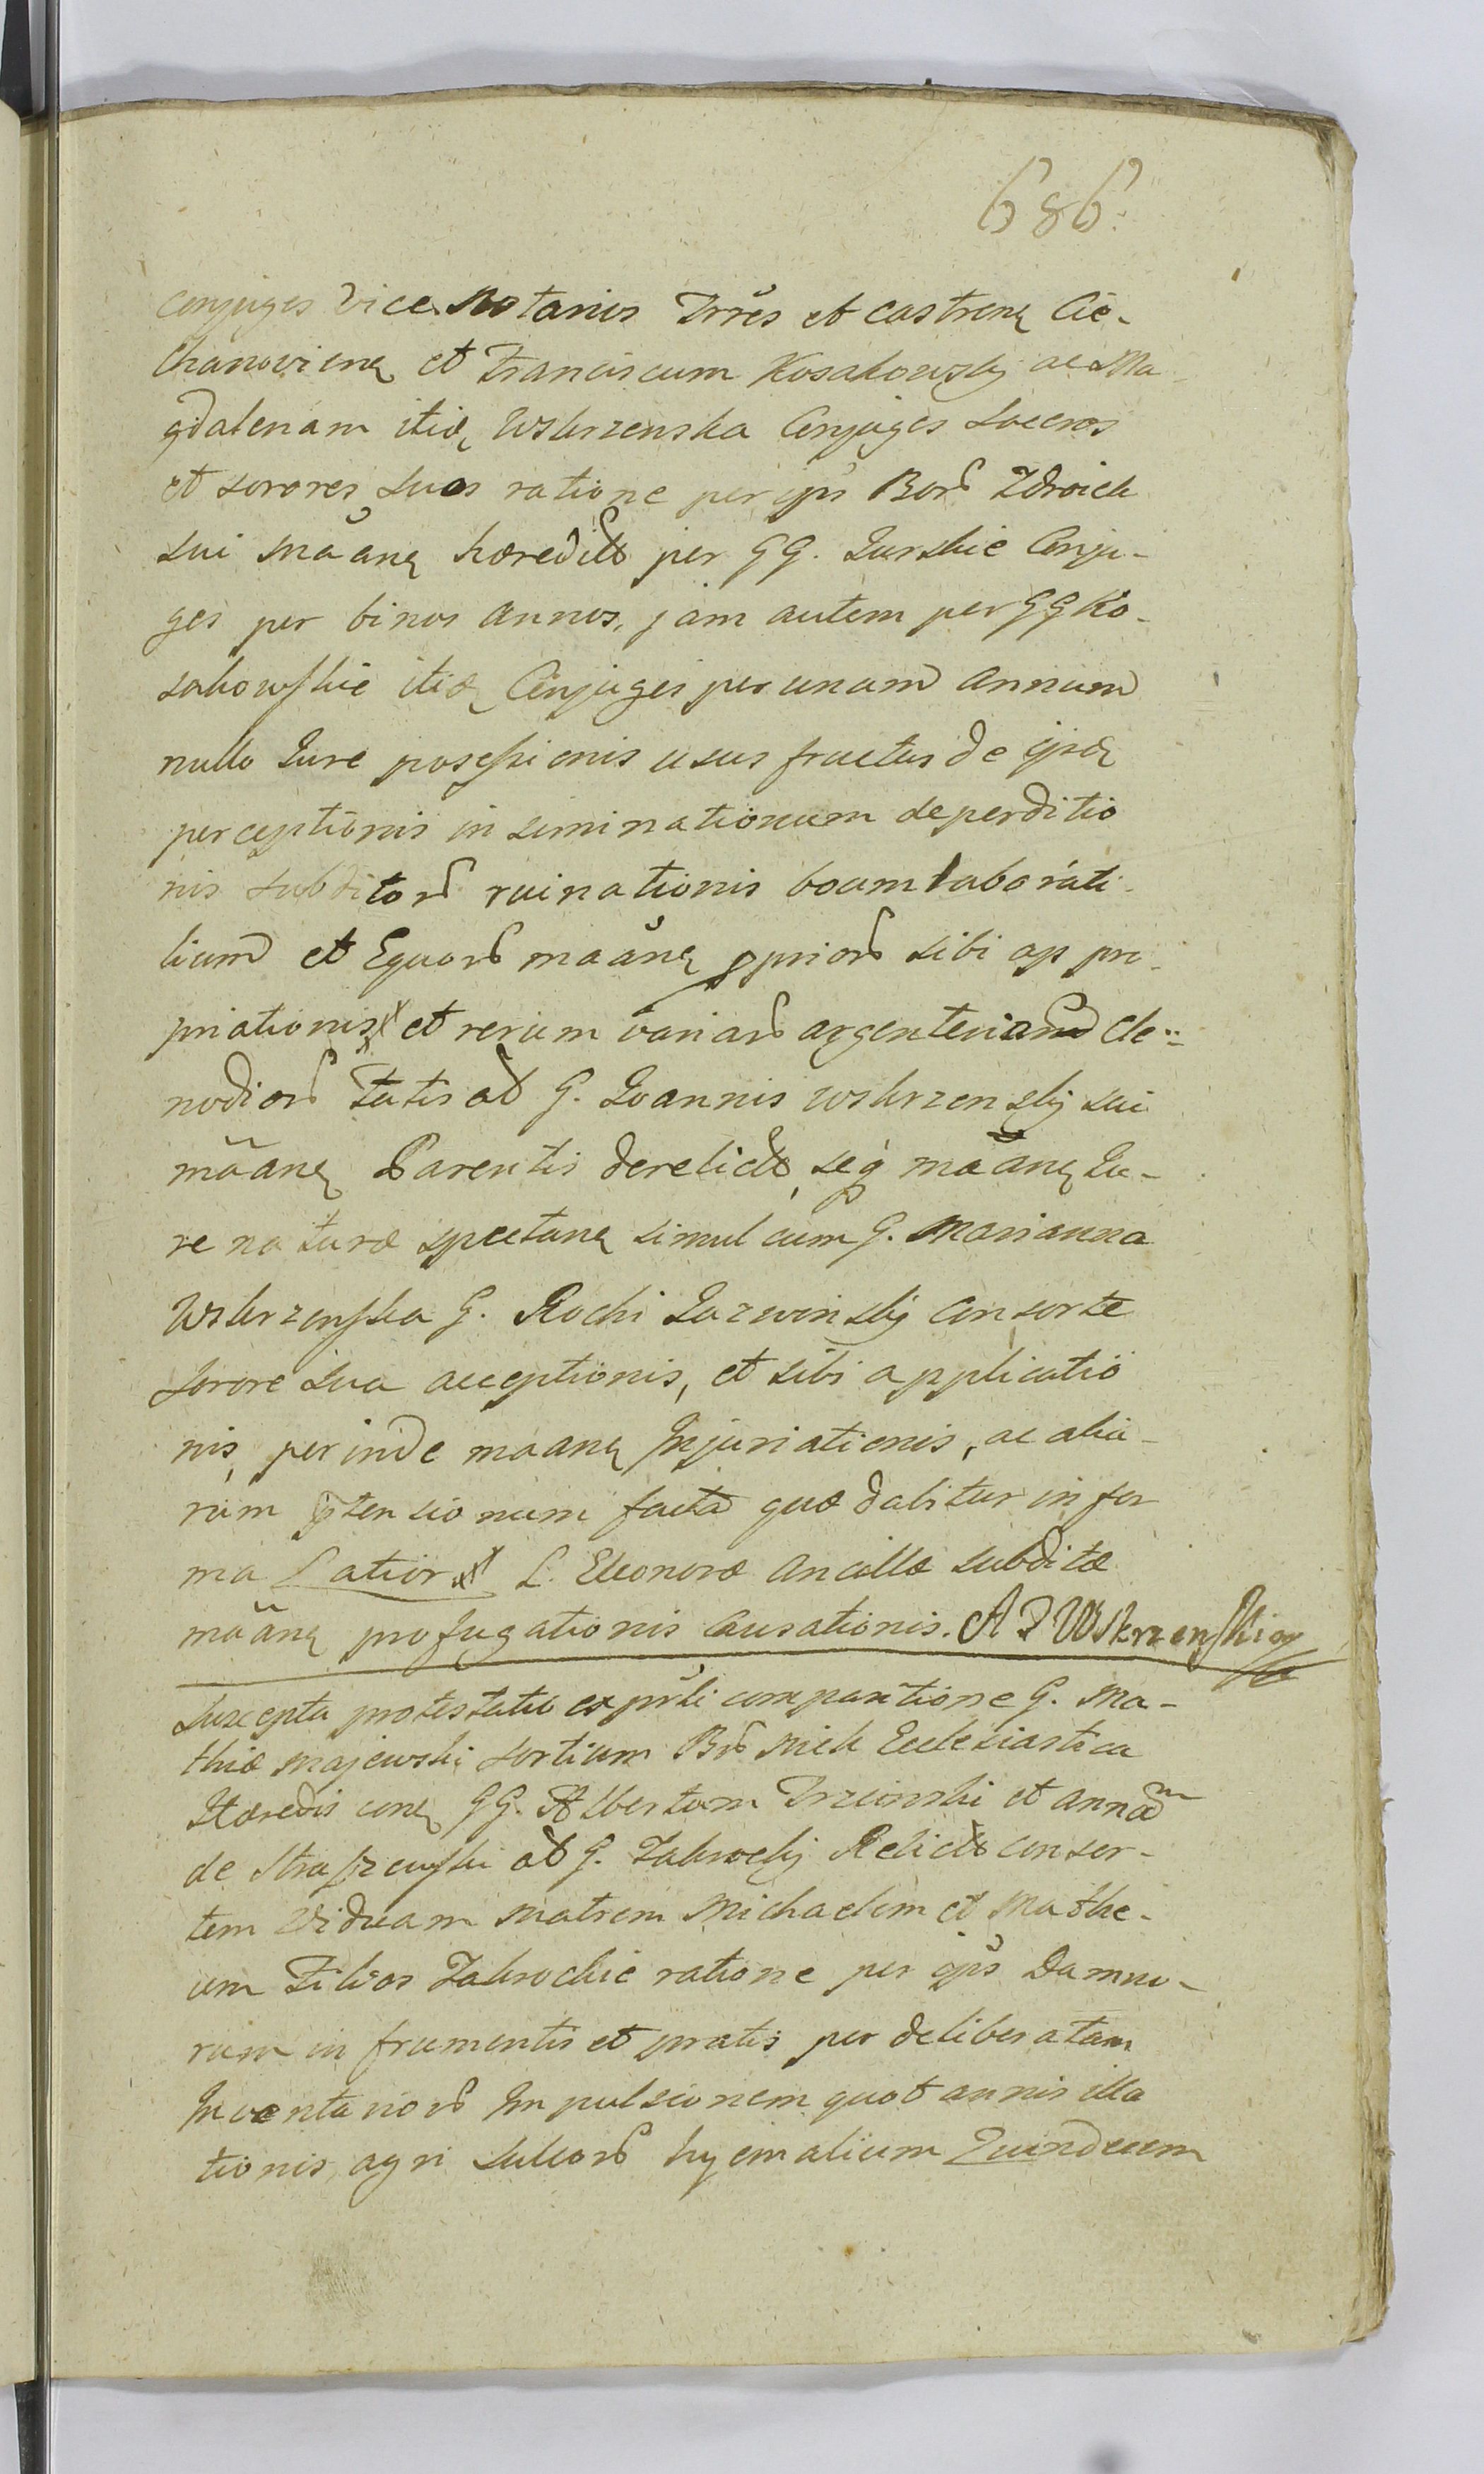 686.
Conjuges Vice Notarios Trrēs et castrenę Cie-
chanovienę et Franciscum Kosakowskij ac Ma-
gdalenam itidę Wskrzenska Conjuges Soceros
et sorores suas ratione per ips Bor Zdroiek
sui mãanę hæredit per GG. Jurskie Conju-
ges per binos annos, jam autem per GG Ko-
sakowskie itidę Conjuges per unum annum
nullo Jure possessionis usus fructus de ipsię
perceptionis inseminationum deperditio
nis subditor ruinationis boum laborati-
lium et Equor mãanę ppriior sibi appro-
priationis et rerum variar argenteriarum Cle-
nodior Fatis ad G. Joannis Wskrzenskij sui
mãanę Parentis derelict, seq mãanę Ju-
re naturæ spectanę simul cum G. Marianna
Wskrzenska G. Rochi Jazwinskij Consorte
sorore sua acceptionis, et sibi applicatio
nis, perinde maanę Injuriationis, ac alia-
rum ptensionum facta quæ dabitur in for
ma Latior L. Eleonoræ ancillæ subditæ
mãanę profugationis Causationis. A P Wskrzenski
Suscepta protestatio ex pnli comparitione G. Ma-
thiæ Majewski sortium Br Miek Ecclesiastica
Hæredis conę GG. Albertum Trzcinski et annam
de Straszewski ad G. Zakrockij Relict consor-
tem Viduam Matrem Michaelem et Mathe-
um Filios Zakrockie ratione per ips Damno-
rum in frumentis et pratis per deliberatam
Inventarior Impulsionem quot annis illa
tionis, agri sulcor hyemalium Quindecem